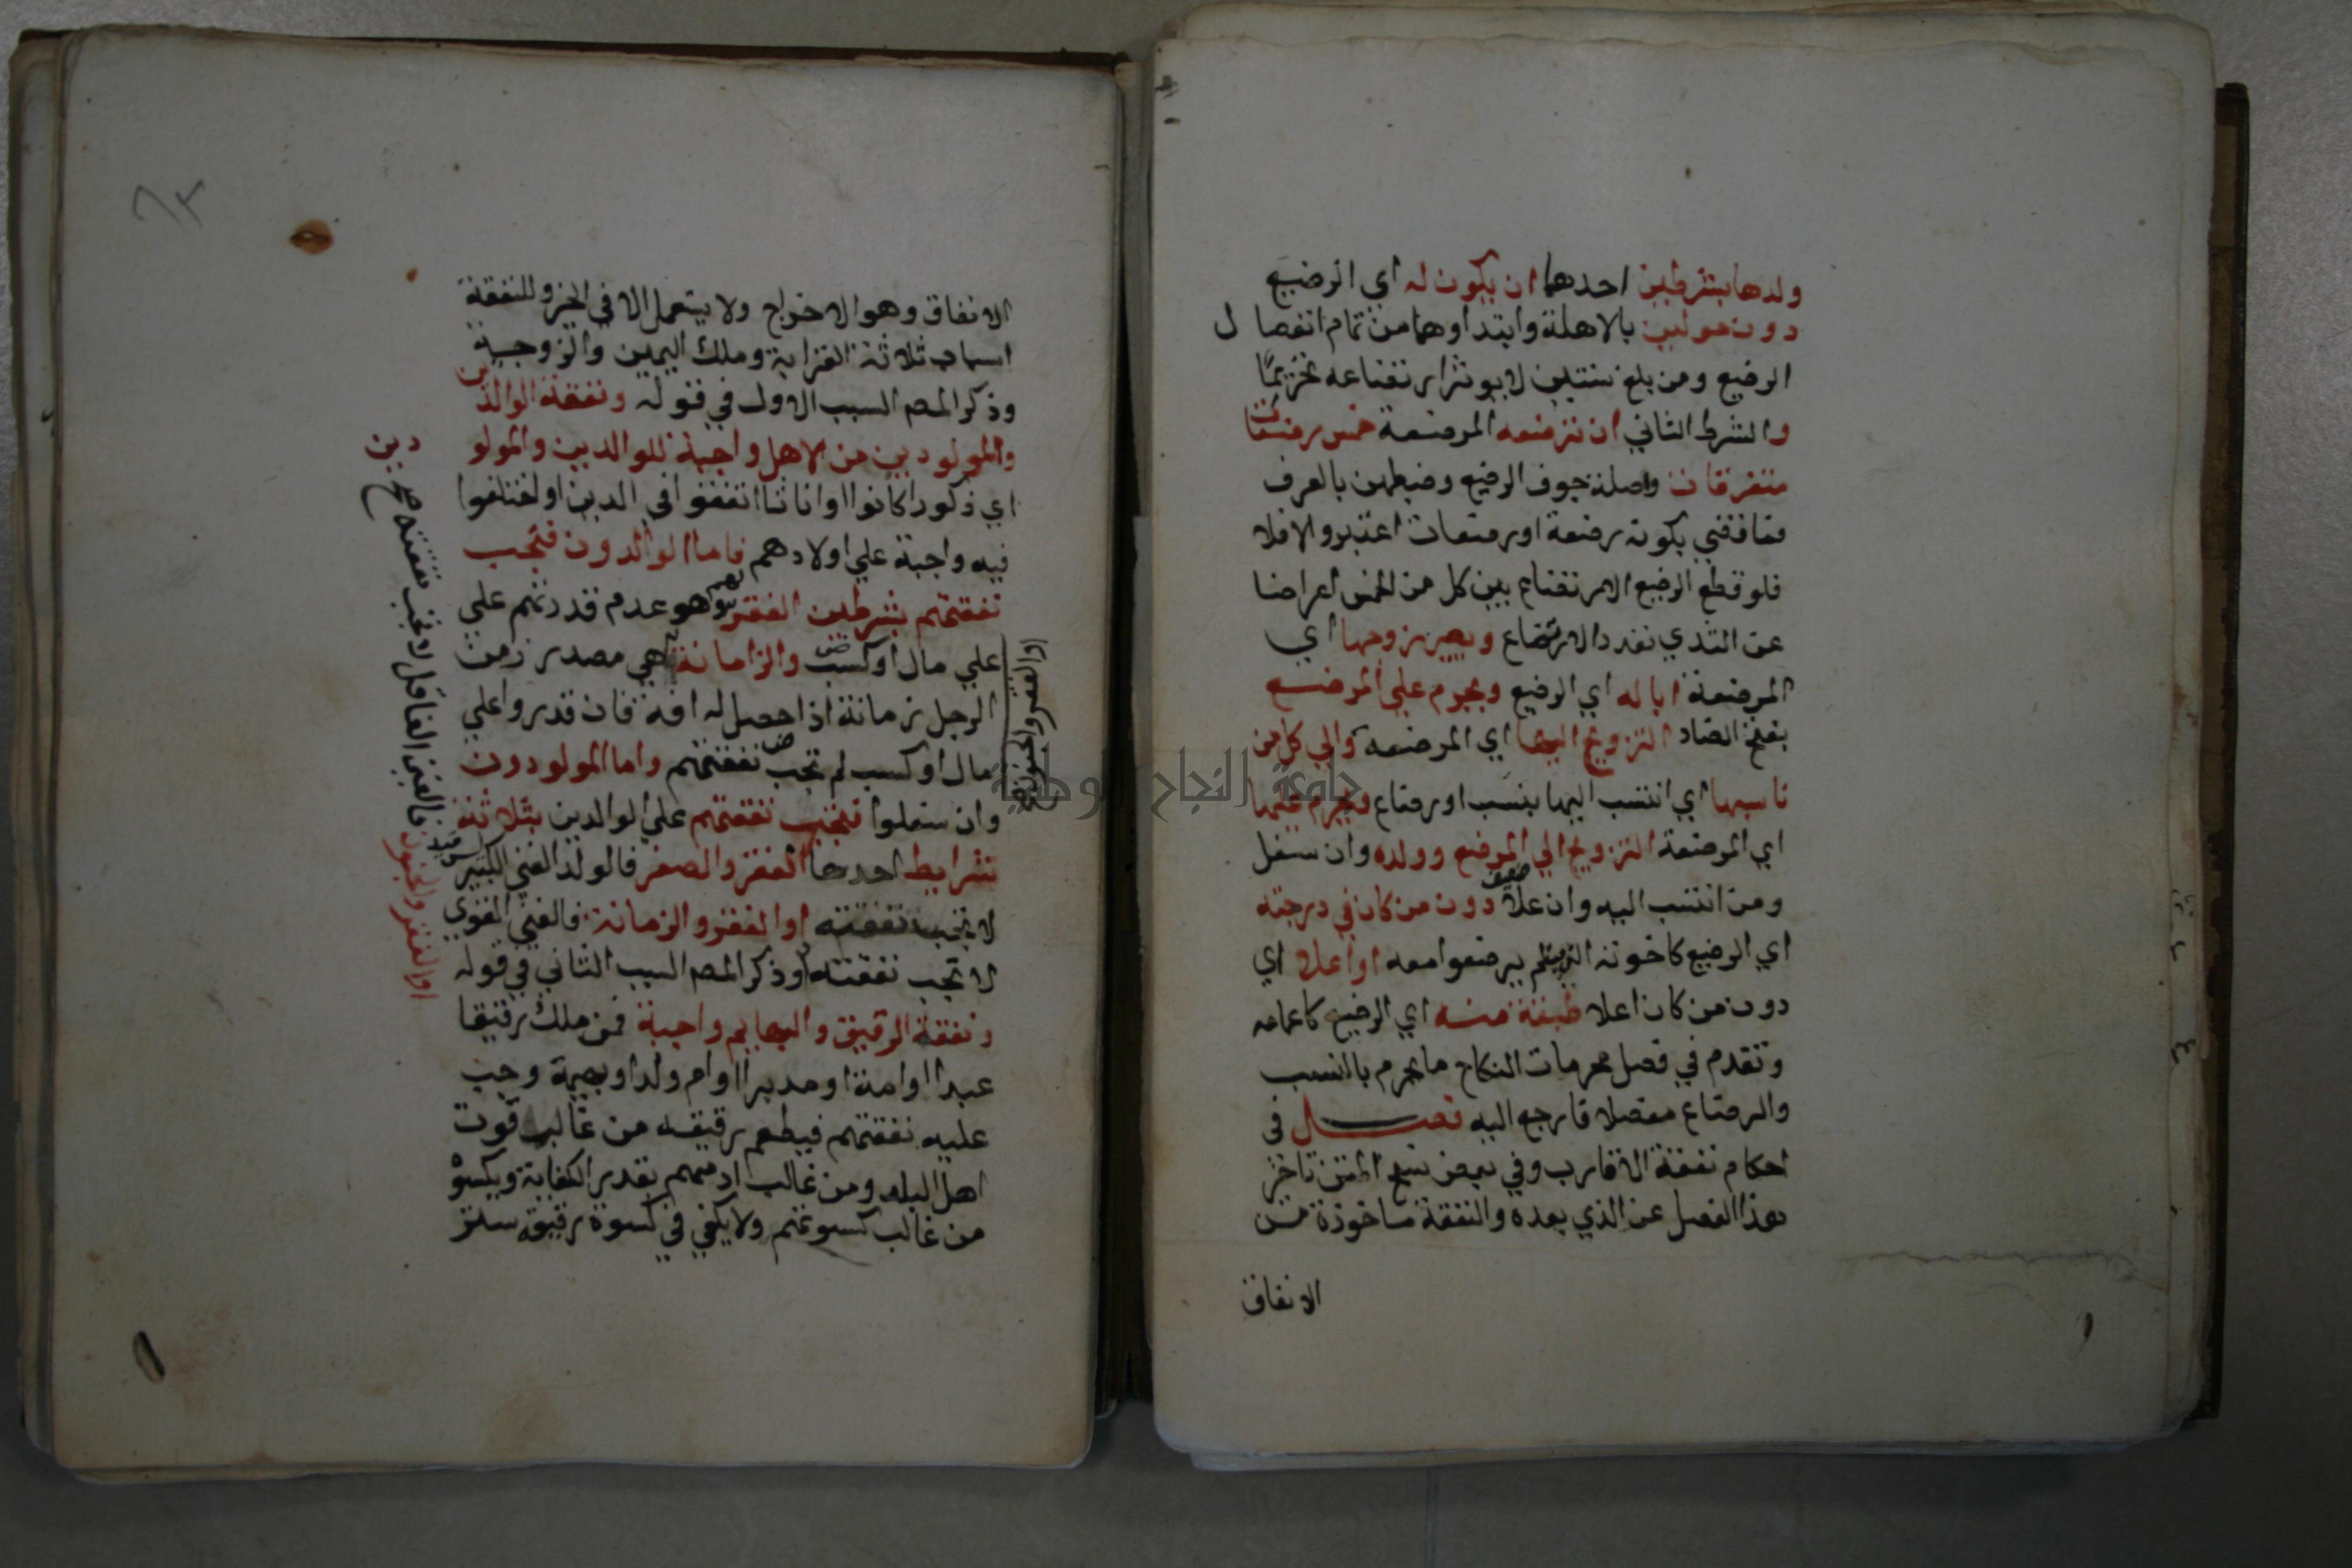 ولدها بشرطين احدهما ان يكون له اي الرضيع
دون حولين بالاهلة وابتداوهما من تمام انفصال
الرضيع ومن بلغ سنتين لا يوثر ارتضاعه تحريمًا
والشرط الثاني ان ترضعه المرضعة خمس رضعات
متفرقات واصلة جوف الرضيع وضبطهن بالعرف
فما قضي بكونه رضعة او رضعات اعتبر والا فلا
فلو قطع الرضيع الارتضاع بين كل من الخمس اعراضا
عن الثدي تعدد الارتضاع ويصير زوجها اي
المرضعة ابا له اي الرضيع ويحرم علي المرضع
بفتح الضاد التزويج اليها اي المرضعة والي كل من
ناسبها اي انتسب اليها بنسب او رضاع ويحرم عليها
اي المرضعة التزويج الي المرضع وولده وان سفل
ومن انتسب اليه وان علا دون من كان في درجته
اي الرضيع كاخوته الذين لم يرضعوا معه او اعلا اي
دون من كان اعلا طبقة منه اي الرضيع كاعمامه
وتقدم في فصل محرمات النكاح ما يحرم بالنسب
والرضاع مفصلا فارجع اليه فصل في
احكام نفقة الاقارب وفي بعض نسخ المتن تاخير
هذا الفصل عن الذي بعده والنفقة ماخوذة من
الانفاق
الانفاق وهو الاخراج ولا يستعمل الا في الخير وللنفقة
اسباب ثلاثة القرابة وملك اليمين والزوجية
وذكر المصم السبب الاول في قوله ونفقة الوالدين
والمولودين من الاهل واجبة للوالدين والمولو
دين
اي ذكورا كانوا او اناثا اتفقوا في الدين او اختلفوا
فيه واجبة علي اولادهم فاما الوالدون فتجب
نفقتهم بشرطين الفقر وهو عدم قدرتهم علي
علي مال او كسب والزمانة هي مصدر زمن
او الفقر والجنون صح
الرجل زمانة اذا حصل له افة فان قدروا علي
مال او كسب لم تجب نفقتهم واما المولودون
وان سفلوا فتجب نفقتهم علي الوالدين بثلاثة
شرايط احدها الفقر والصغر فالولد الغني الكبير
لا تجب نفقته او الفقر والزمانة فالغني القوي
لا تجب نفقته وذكر المصم السبب الثاني في قوله
او الفقر والجنون فالغني العاقل لا تجب نفقته صح
ونفقة الرقيق والبهايم واجبة فمن ملك رقيقا
عبدا او امة او مدبرا او ام ولد او بهيمة وجب
عليه نفقتهم فيطعم رقيقه من غالب قوت
اهل البلد ومن غالب ادمهم بقدر الكفاية ويكسوه
من غالب كسوتهم ولا يكفي في كسوة رقيقه ستر
جامعة النجاح الوطنية